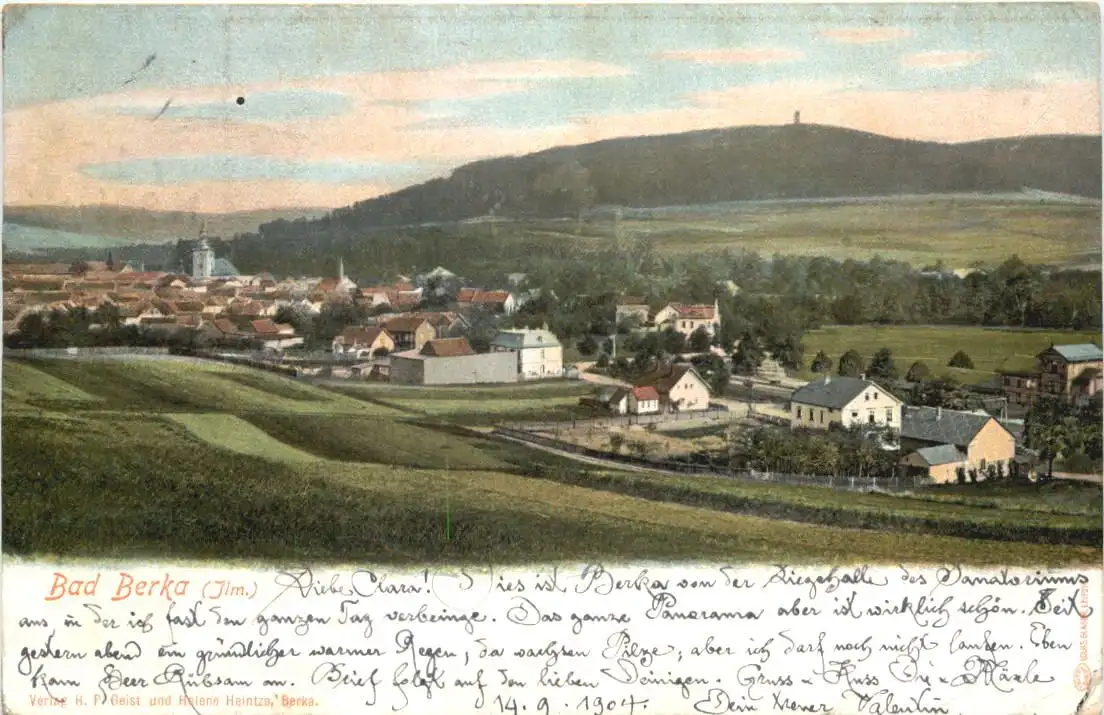 Bad Berka (Ilm.)
Liebe Clara! Dies ist Berka von der Liegehalle des Sanatoriums
aus in der ich fast den ganzen Tag verbringe. Das ganze Panorama aber ist wirklich schön. Seit
gestern abend ein gründlicher warmer Regen, da wachsen Pilze, aber ich darf noch nicht laufen. Eben
kam Deer Rübsam an. Brief folgt auf den lieben Deinigen. Gruss u Kuss Dir u
14.9.1904. Dein treuer Valentin
Verlag H. F. Geist und Helene Heintze, Berka.